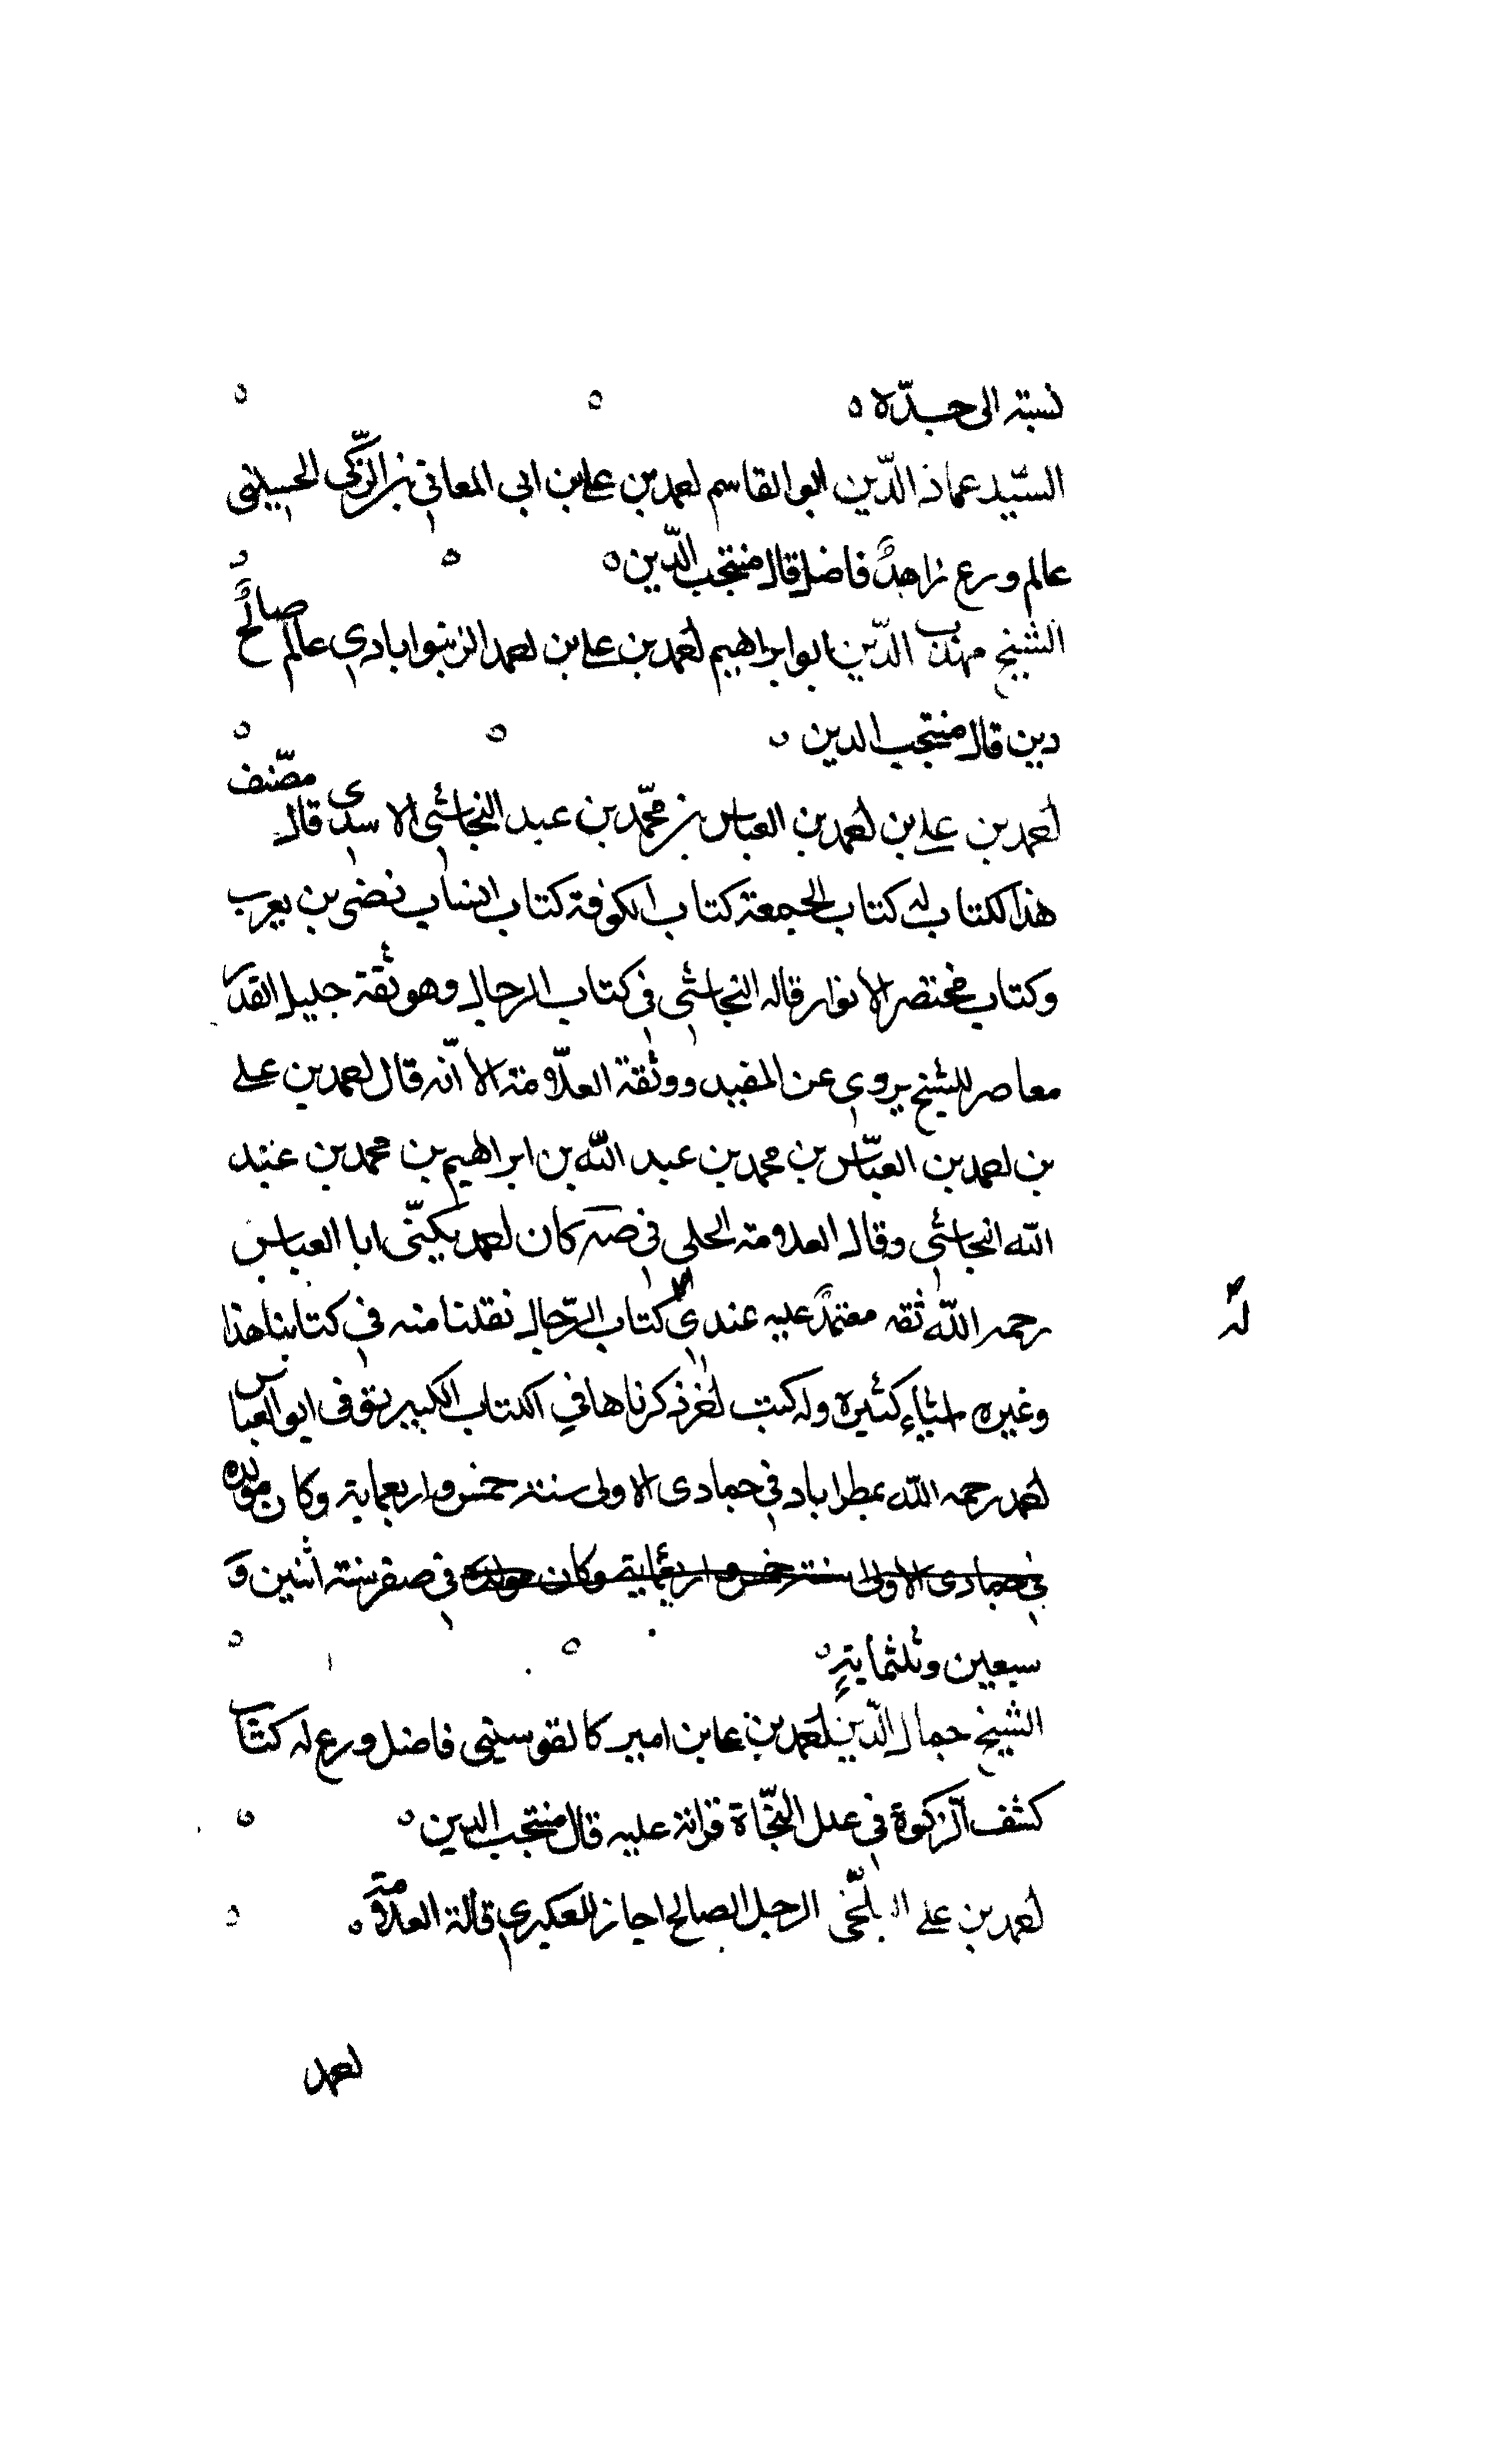 نسبته الى جدّه
السّيد عماد الدّين ابو القاسم احمد بن علي بن ابي المعالي بن الزكّي الحسيني
عالم ورع زاهدٌ فاضل قاله منتجب الدّين
الشيخ مهذب الدّين ابو ابراهيم احمد بن علي بن احمد الزينوابادي عالم صالحٌ
دين قاله منتجب الدين
احمد بن علي بن احمد بن العباس بن محمّد بن عبد النجاشي الاسدي مصّنف قال
هذا لكتاب له كتاب الجمعة كتاب الكوفة كتاب انساب نضر بن يعرب
وكتاب مختصر الانوار قاله النجاشي في كتاب الرجال وهو ثقة جليل القدر
معاصر للشيخ يروي عن المفيد ووثقة العلّامة الا انّه قال احمد بن علي
بن احمد بن العبّاس بن محمد بن عبد الله بن ابراهيم بن محمد بن عبد
الله النجاشي وقال العلامة الحلي في صه كان احمد يكنّى ابا العباس
رحمه الله ثقه معتمدٌ عليه عندي كتاب الرّجال نقلنا منه في كتابنا هذا
له
وغيره اشياء كثيره وله كتب اخر ذكرناها في الكتاب الكبير توفى ابو العباس
احمد رحمه الله بمطراباد في جمادى الاولى سنة خمس واربعماية وكان مولده
في جمادى الاولى سنة خمس واربعماية وكان مولده في صفر سنة اثنين و
سبعين وثلثماية
الشيخ جمال الدّين احمد بن علي بن اميركا لقوسيني فاضل ورع له كتاب
كشف الزكوة في علل النّجاة قرانة عليه قال منتجب الدين
احمد بن علي البلّخي الرجل الصالح اجاز للعكبري قاله العلامة
احمد